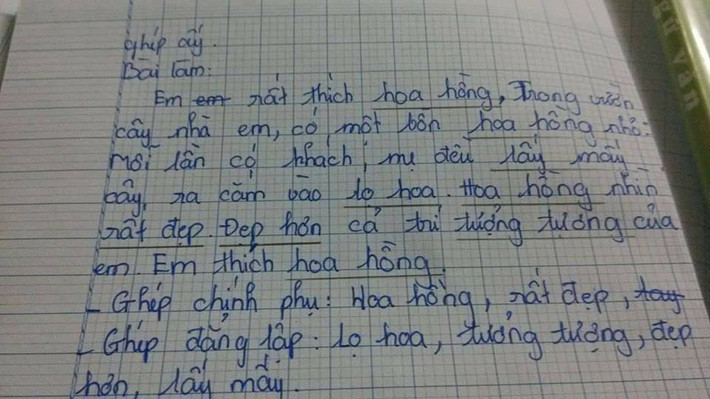 ghép ấy.
Bài làm:
Em em rất thích hoa hồng, Trong vườn
cây nhà em, có một bồn hoa hồng nhỏ.
Mỗi lần có khách, mẹ đều lấy mấy
cây, ra cắm vào lọ hoa. Hoa hồng nhìn
rất đẹp. Đẹp hơn cả trí tưởng tượng của
em. Em thích hoa hồng.
- Ghép chính phụ: Hoa hồng, rất đẹp,
- Ghép đẳng lập: lọ hoa, tưởng tượng, đẹp
hơn, lấy mấy.
ngữ văn